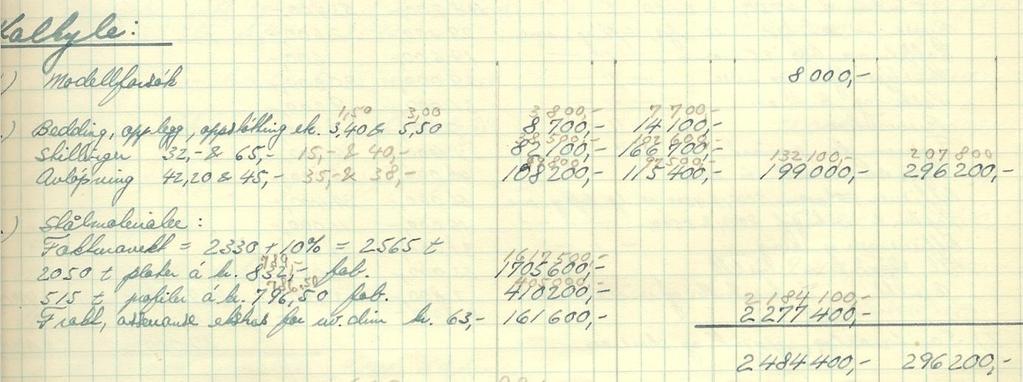 Kalkyle:
) Modellforsøk 8000,-
1,50 3,00 3800,- 7700,-
.) Bedding, opplegg, oppstøtting etc. 3,40 & 5,50 8700,- 14100,-
Stillinger 32,- & 65,- 15,- & 40,- 82100,- 166700,- 132100,- 207800
Avløpning 42,20 & 45,- 35,- & 38,- 108200,- 115400,- 199000,- 296200,-
) Stålmaterialer:
Fakturavekt = 2330 + 10% = 2565 t
789,- 1617500,-
2050 t plater á kr. 832,- fob. 1705600,-
786,50 405000,-
515 t profiler á kr. 796,50 fob. 410200,- 2184100,-
Frakt, assuranse ekstras for uv. dim kr. 63,- 161600,- 2277400,-
2484400,- 296200,-